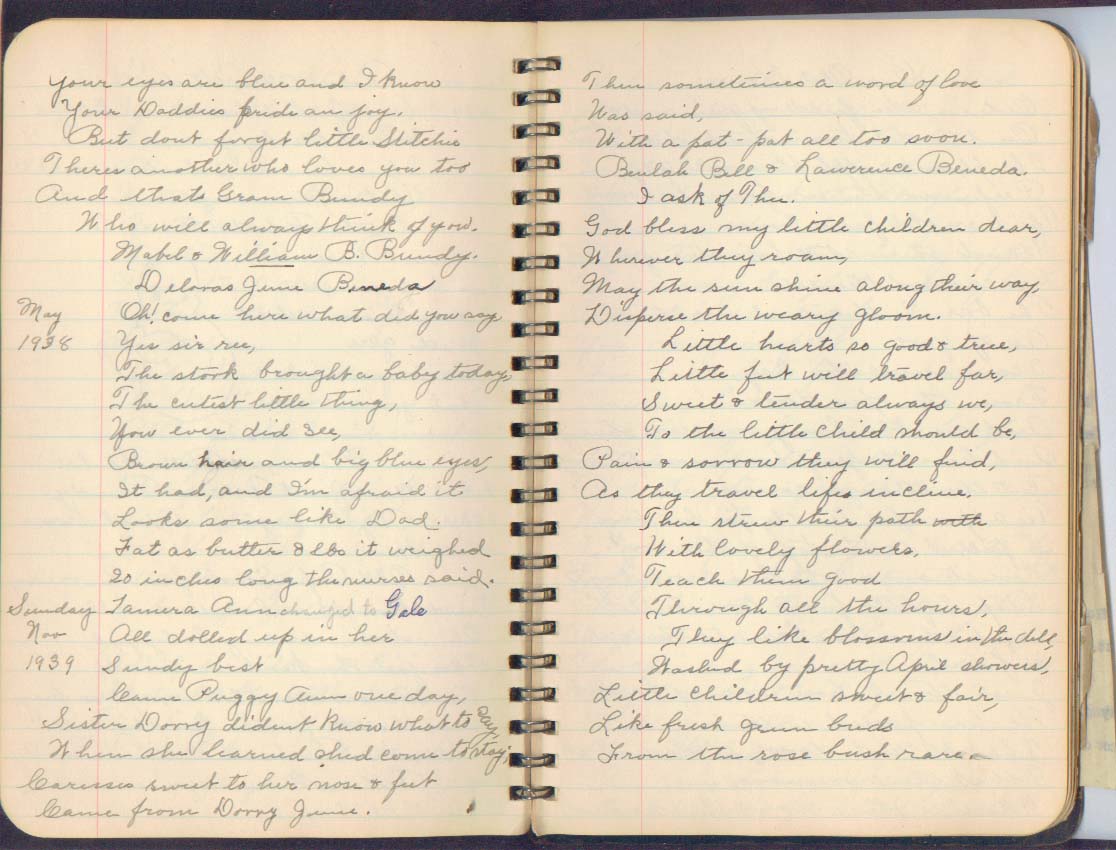 Your eyes are blue and I know
Your Daddies pride an joy.
But dont forget little Stitchie
Theres another who loves you too
And thats Gram Bundy
Who will always think of you.
Mabel & William B. Bundy.
Deloras June Beneda
May
1938
Oh! come here what did you say
Yes sir ree,
The stork brought a baby today,
The cutist little thing,
You ever did see,
Brown hair and big blue eyes,
It had, and I'm afraid it
Looks some like Dad.
Fat as butter 8 lbs it weighed
20 inches long the nurses said.
Sunday
Nov
1939
Tamera Ann changed to Gele
All dolled up in her
Sundy best
Came Puggy Ann one day,
Sister Dorry dident know what to say
When she learned shed come to stay;
Caresses sweet to her nose & feet
Came from Dorry June.
Then sometimes a word of love
Was said,
With a pat-pat all too soon.
Beulah Bell & Lawerence Beneda.
I ask of Thee.
God bless my little children dear,
Wherever they roam,
May the sun shine along their way
Disperse the weary gloom.
Little hearts so good & true,
Little feet will travel far,
Sweet & tender always we,
To the little child should be,
Pain & sorrow they will find,
As they travel lifes incline.
Then strew their path with
With lovely flowers,
Teach them good
Through all the hours,
They like blossoms in the dell,
Washed by pretty April showers,
Little children sweet & fair,
Like fresh June buds
From the rose bush rare